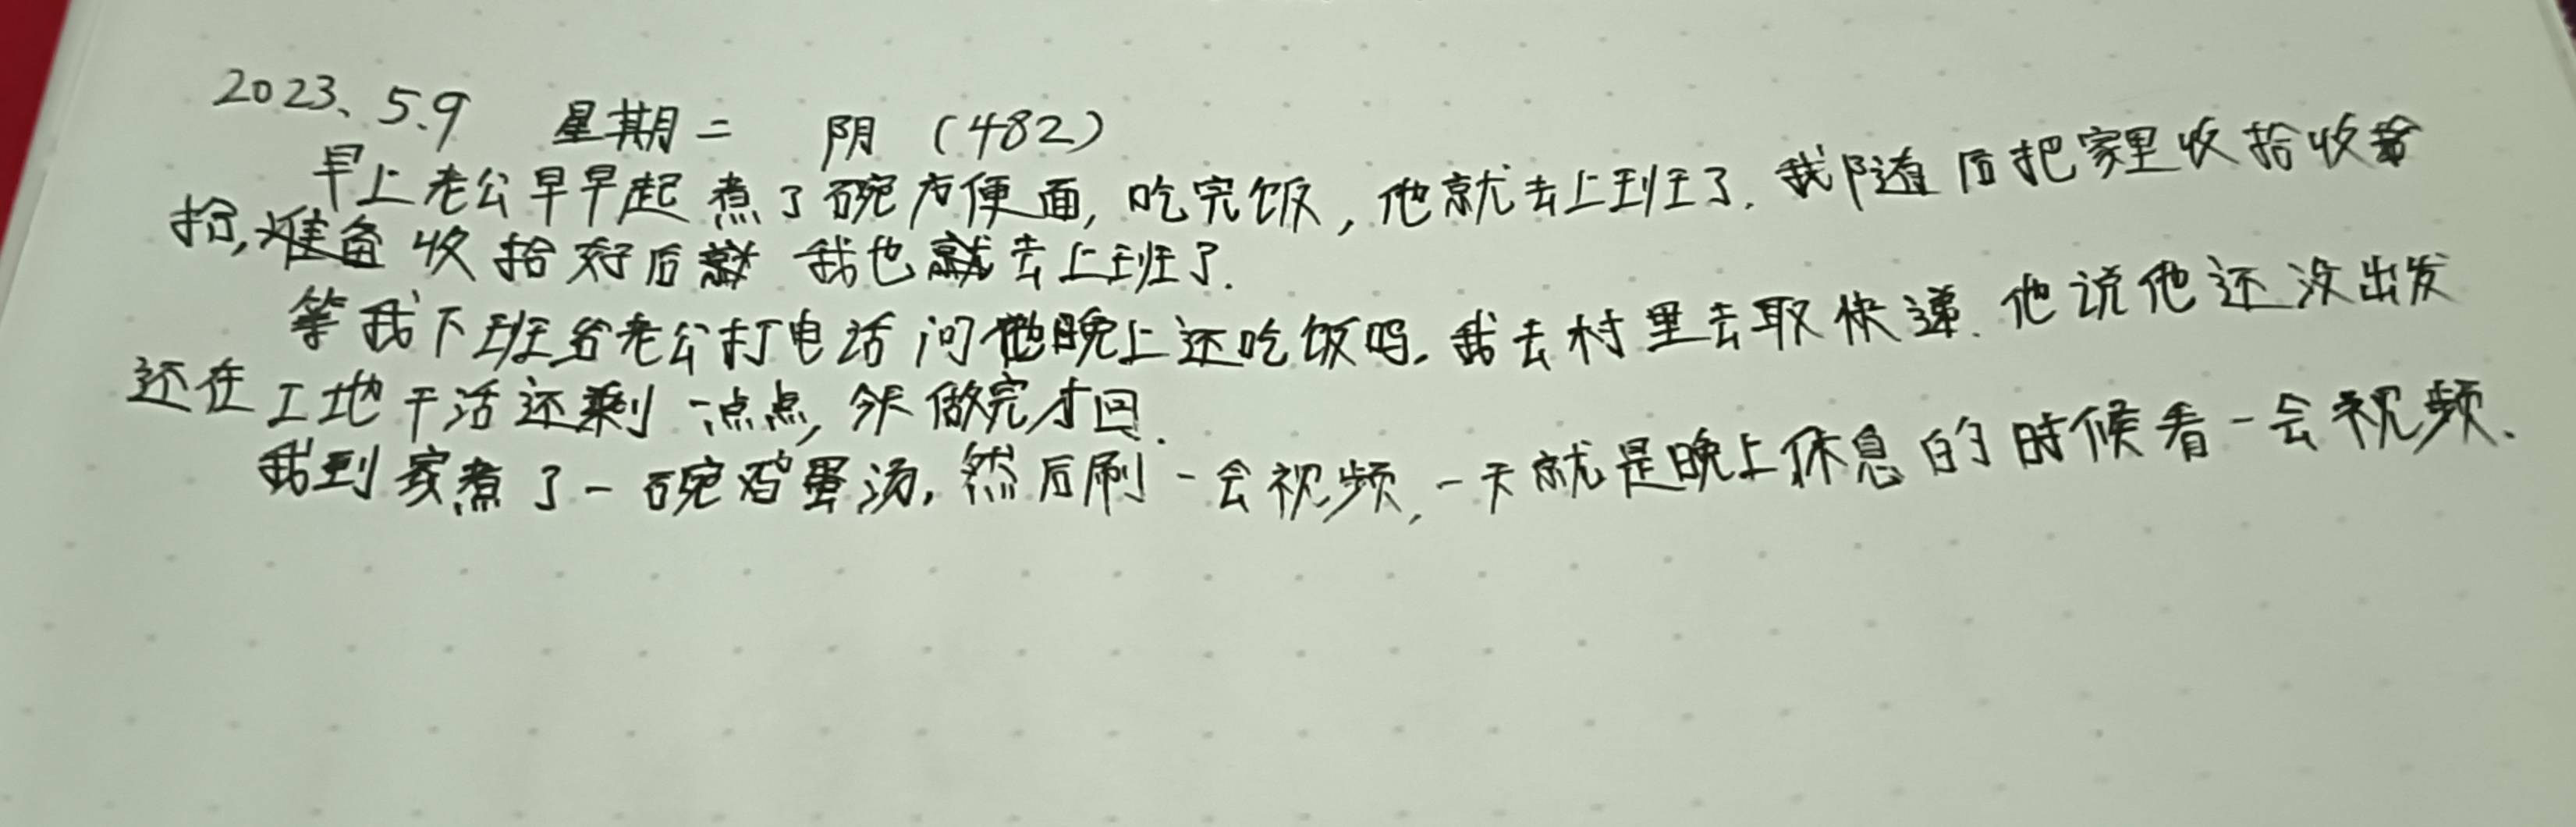 2023、5.9 星期二 阴 (482)
早上老公早早起煮了碗方便面, 吃完饭, 他就去上班了. 我随后把家里收拾收
拾, 准备收拾好后就 我也就去上班了.
等我下班给老公打电话问他晚上还吃饭吗. 我去村里去取快递. 他说他还没出发
还在工地干活还剩一点点, 今天做完才回.
我到家煮了一碗鸡蛋汤, 然后刷一会视频, 一天就是晚上休息的时候看一会视频、